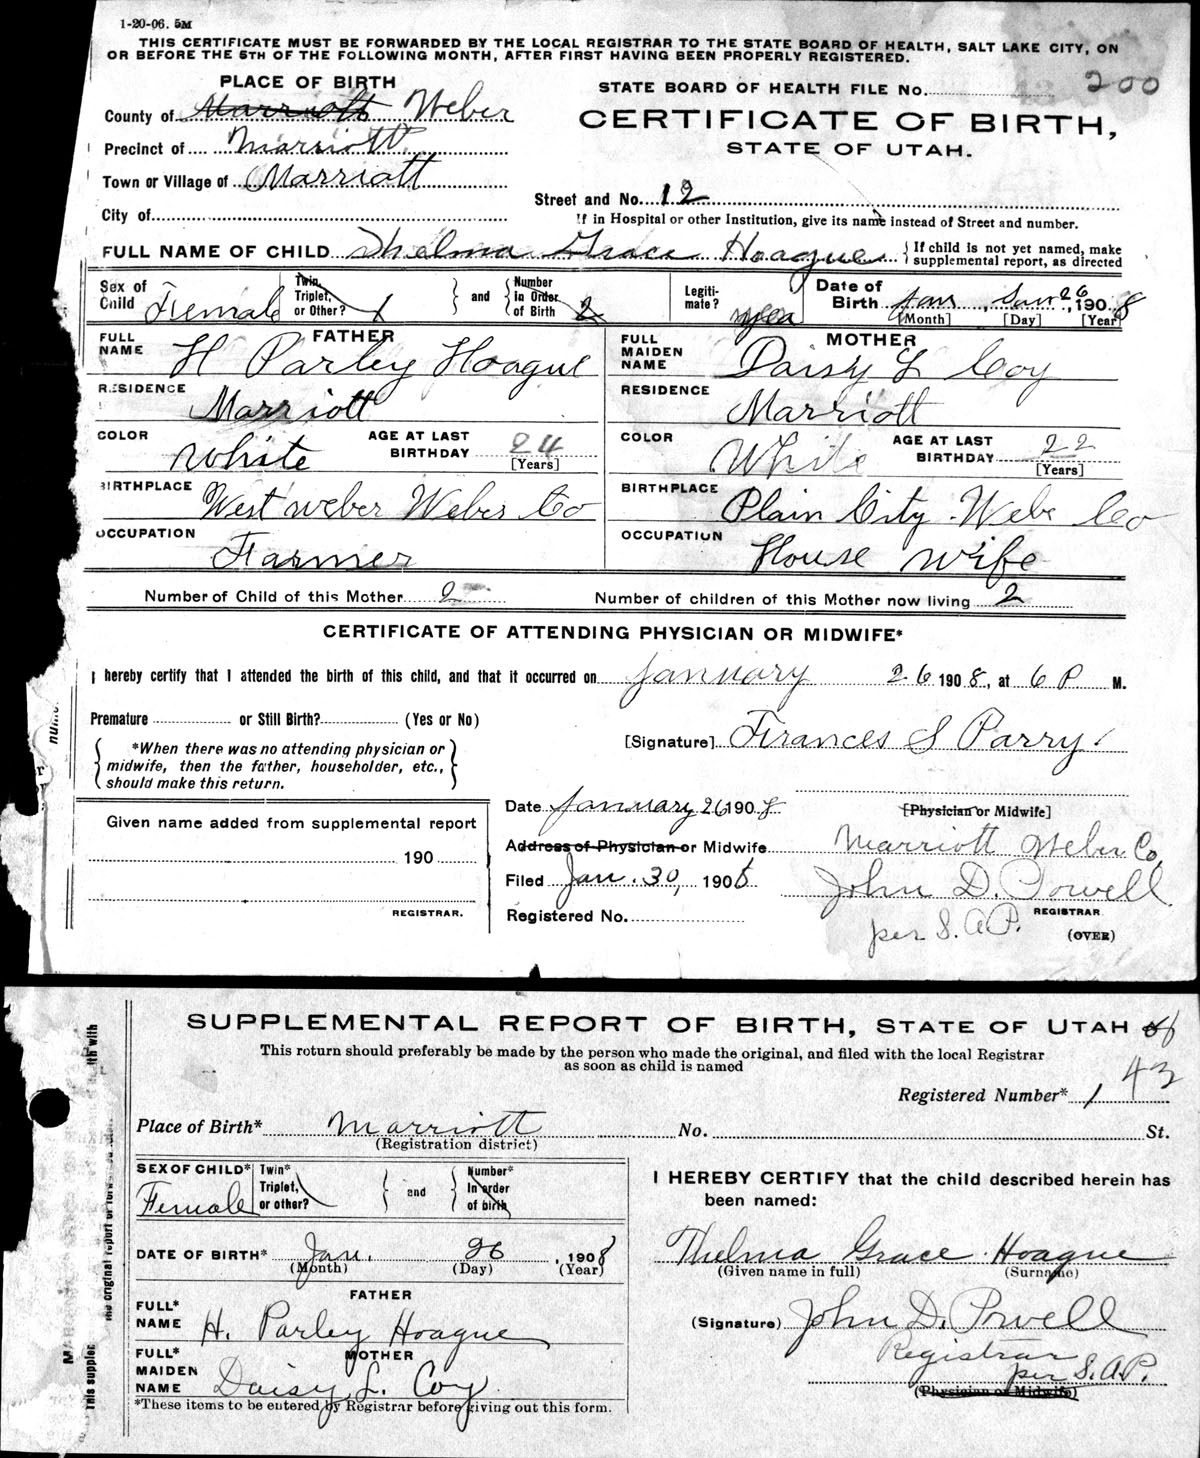 1-20-06. 5M
THIS CERTIFICATE MUST BE FORWARDED BY THE LOCAL REGISTRAR TO THE STATE BOARD OF HEALTH, SALT LAKE CITY, ON
OR BEFORE THE 5TH OF THE FOLLOWING MONTH, AFTER FIRST HAVING BEEN PROPERLY REGISTERED.
PLACE OF BIRTH
STATE BOARD OF HEALTH FILE NO. 200
County of Marriott Weber
CERTIFICATE OF BIRTH,
Precinct of Marriott
STATE OF UTAH.
Town or Village of Marriott
Street and No. 12
City of
If in Hospital or other Institution, give its name instead of Street and number.
FULL NAME OF CHILD Thelma Grace Hoague { If child is not yet named, make
supplemental report, as directed
Sex of Child Female
Twin, Triplet, or Other? 1 } and { Number in Order of Birth 2
Legiti-mate? yea
Date of Birth Jan Jan 26, 1908
[Month] [Day] [Year]
FATHER
FULL NAME H Parley Hoague
MOTHER
FULL MAIDEN NAME Daisy L Coy
RESIDENCE Marriott
RESIDENCE Marriott
COLOR White AGE AT LAST BIRTHDAY 24 [Years]
COLOR White AGE AT LAST BIRTHDAY 22 [Years]
BIRTHPLACE West weber Weber Co
BIRTHPLACE Plain City Webe Co
OCCUPATION Farmer
OCCUPATION House wife
Number of Child of this Mother 2 Number of children of this Mother now living 2
CERTIFICATE OF ATTENDING PHYSICIAN OR MIDWIFE*
I hereby certify that I attended the birth of this child, and that it occurred on January 26 1908, at 6 P. M.
Premature or Still Birth? (Yes or No)
[Signature] Frances S Parry
*When there was no attending physician or
midwife, then the father, householder, etc.,
should make this return.
Date January 26 1908
[Physician or Midwife]
Given name added from supplemental report
Address of Physician or Midwife Marriott Weber Co.
190
Filed Jan. 30, 1908 John D. Powell
REGISTRAR.
Registered No.
REGISTRAR
per S. A. P.
(OVER)
SUPPLEMENTAL REPORT OF BIRTH, STATE OF UTAH
This return should preferably be made by the person who made the original, and filed with the local Registrar
as soon as child is named
Registered Number* 1 43
Place of Birth* Marriott No. St.
(Registration district)
SEX OF CHILD* Female
Twin* Triplet, or other? } and { Number* In order of birth
I HEREBY CERTIFY that the child described herein has
been named:
DATE OF BIRTH* Jan. 26, 1908
(Month) (Day) (Year)
Thelma Grace Hoague
(Given name in full) (Surname)
FATHER
FULL* NAME H. Parley Hoague
(Signature) John D. Powell
MOTHER
FULL* MAIDEN NAME Daisy L. Coy
Registrar
per S. A. P.
(Physician or Midwife)
*These items to be entered by Registrar before giving out this form.